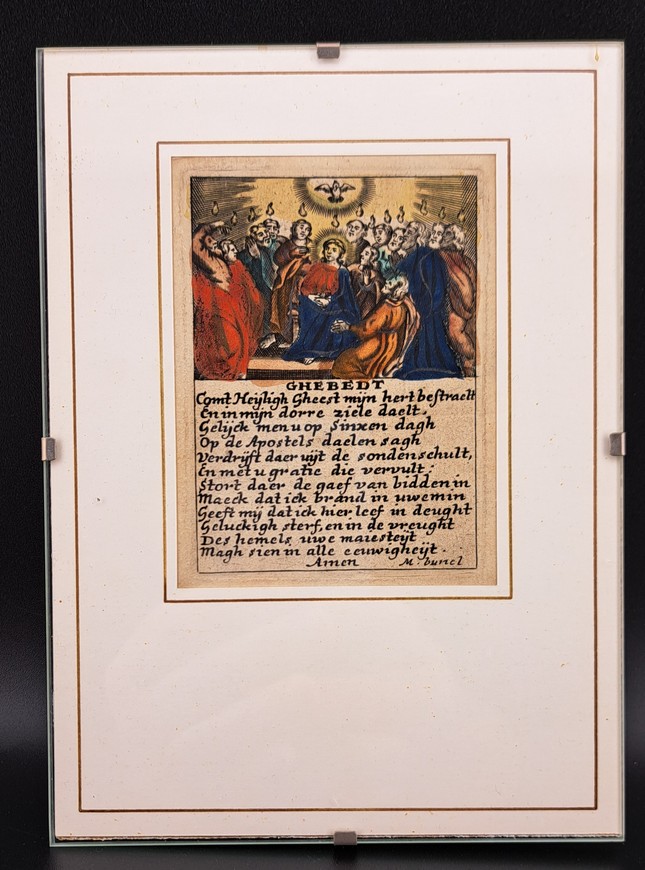 GHEBEDT
Comt Heyligh Gheest mijn hert bestraelt
En in mijn dorre ziele daelt,
Gelijck men u op Sinxen dagh
Op de Apostels daelen sagh
Verdrijft daer uijt de sondenschult,
En met u gratie die vervult:
Stort daer de gaef van bidden in
Maeck dat ick brand in uwe min
Geeft mij dat ick hier leef in deught
Geluckigh sterf, en in de vreught
Des hemels uwe maiesteijt
Magh sien in alle eeuwigheijt.
Amen M. bunel